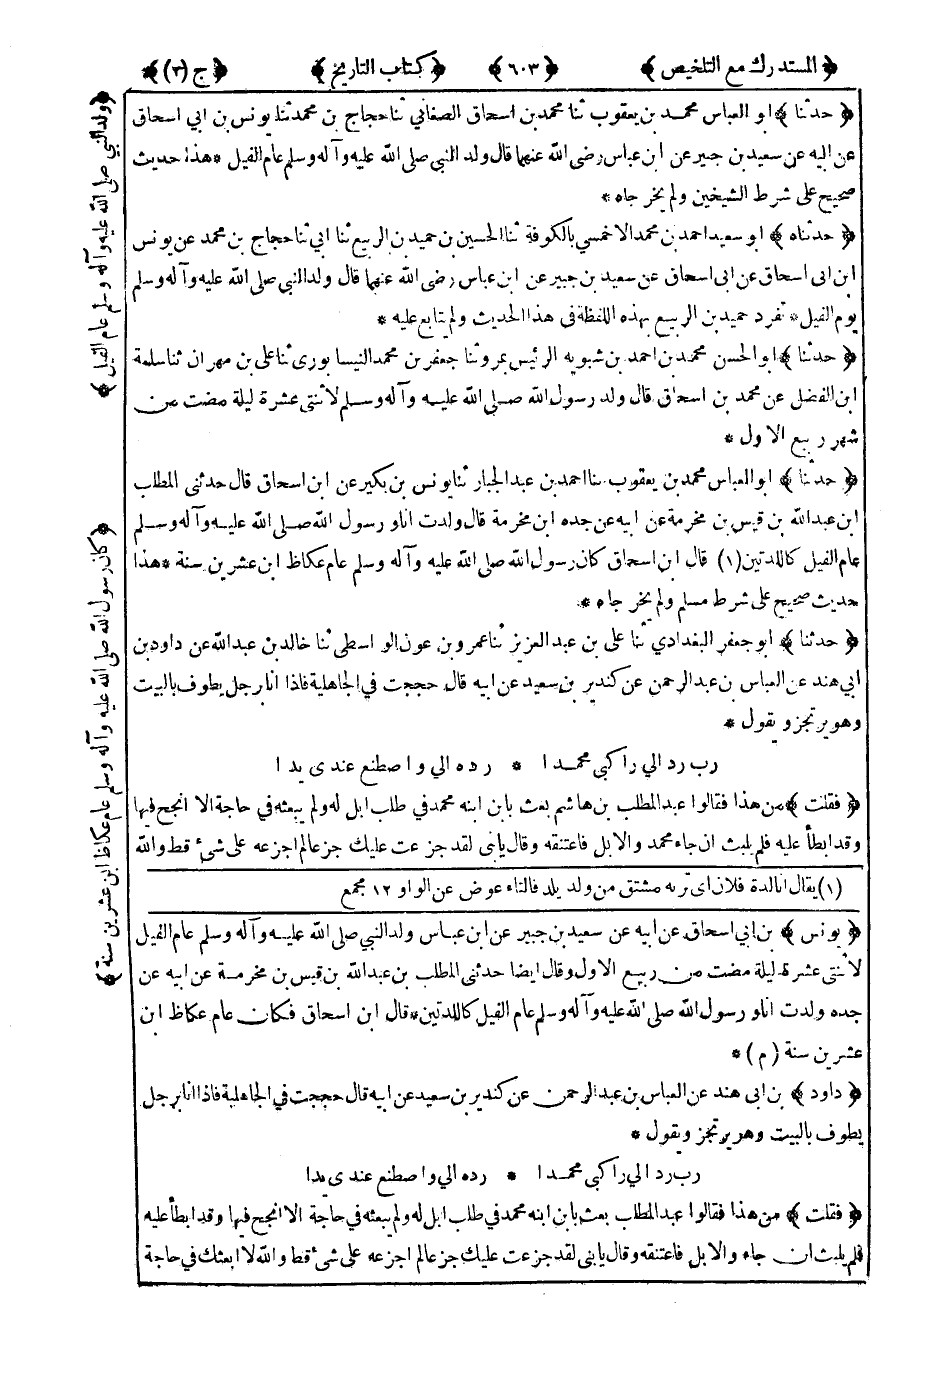 ﴿ المستدرك مع التلخيص ﴾ ﴿ ٦٠٣ ﴾ ﴿ كتاب التاريخ ﴾ ﴿ ج (٢) ﴾
﴿ حدثنا ﴾ ابو العباس محمد بن يعقوب ثنا محمد بن اسحاق الصغانى ثنا حجاج بن محمد ثنا يونس بن ابى اسحاق
عن ابيه عن سعيد بن جبير عن ابن عباس رضى الله عنهما قال ولد النبي صلى الله عليه وآله وسلم عام الفيل * هذا حديث
صحيح على شرط الشيخين ولم يخرجاه *
﴿ حدثناه ﴾ ابو سعيد احمد بن محمد الاخمسي بالكوفة ثنا الحسين بن حميد بن الربيع ثنا ابى ثنا حجاج بن محمد عن يونس
ابن ابى اسحاق عن ابى اسحاق عن سعيد بن جبير عن ابن عباس رضى الله عنهما قال ولد النبي صلى الله عليه وآله وسلم
يوم الفيل * تفرد حميد بن الربيع بهذه اللفظة فى هذا الحديث ولم يتابع عليه *
﴿ حدثنا ﴾ ابو الحسن محمد بن احمد بن شبويه الرئيس بمرو ثنا جعفر بن محمد النيسابورى ثنا على بن مهران ثنا سلمة
ابن الفضل عن محمد بن اسحاق قال ولد رسول الله صلى الله عليه وآله وسلم لاثنتى عشرة ليلة مضت من
شهر ربيع الاول *
﴿ حدثنا ﴾ ابو العباس محمد بن يعقوب ثنا احمد بن عبد الجبار ثنا يونس بن بكير عن ابن اسحاق قال حدثنى المطلب
ابن عبد الله بن قيس بن مخرمة عن ابيه عن جده ابن مخرمة قال ولدت انا ورسول الله صلى الله عليه وآله وسلم
عام الفيل كاللدتين (١) قال ابن اسحاق كان رسول الله صلى الله عليه وآله وسلم عام عكاظ ابن عشرين سنة * هذا
حديث صحيح على شرط مسلم ولم يخرجاه *
﴿ حدثنا ﴾ ابو جعفر البغدادي ثنا على بن عبد العزيز ثنا عمرو بن عون الواسطى ثنا خالد بن عبد الله عن داود بن
ابي هند عن العباس بن عبد الرحمن عن كندير بن سعيد عن ابيه قال حججت في الجاهلية فاذا انا رجل يطوف بالبيت
وهو يرتجز ويقول *
رب رد الي راكبى محمدا * رده الي واصطنع عندى يدا
﴿ فقلت ﴾ من هذا فقالوا عبد المطلب بن هاشم بعث بابن ابنه محمد في طلب ابل له ولم يبعثه في حاجة الا انجح فيها
وقد ابطأ عليه فلم يلبث ان جاء محمد والابل فاعتنقه وقال يابنى لقد جزعت عليك جزعا لم اجزعه على شئ قط والله
(١) يقال انا لدة فلان اى تربه مشتق من ولد يلد فالتاء عوض عن الواو ١٢ مجمع
﴿ يونس ﴾ بن ابي اسحاق عن ابيه عن سعيد بن جبير عن ابن عباس ولد النبي صلى الله عليه وآله وسلم عام الفيل
لاثنتى عشرة ليلة مضت من ربيع الاول وقال ايضا حدثنى المطلب بن عبد الله بن قيس بن مخرمة عن ابيه عن
جده ولدت انا ورسول الله صلى الله عليه وآله وسلم عام الفيل كاللدتين * قال ابن اسحاق فكان عام عكاظ ابن
عشرين سنة (م) *
﴿ داود ﴾ بن ابى هند عن العباس بن عبد الرحمن عن كندير بن سعيد عن ابيه قال حججت في الجاهلية فاذا انا برجل
يطوف بالبيت وهو يرتجز ويقول *
رب رد الي راكبى محمدا * رده الي واصطنع عندى يدا
﴿ فقلت ﴾ من هذا فقالوا عبد المطلب بعث بابن ابنه محمد في طلب ابل له ولم يبعثه في حاجة الا انجح فيها وقد ابطأ عليه
فلم يلبث ان جاء والابل فاعتنقه وقال يابنى لقد جزعت عليك جزعا لم اجزعه على شئ قط والله لا ابعثك في حاجة
﴿ ولد النبي صلى الله عليه وآله وسلم عام الفيل ﴾
﴿ كان رسول الله صلى الله عليه وآله وسلم عام عكاظ ابن عشرين سنة ﴾